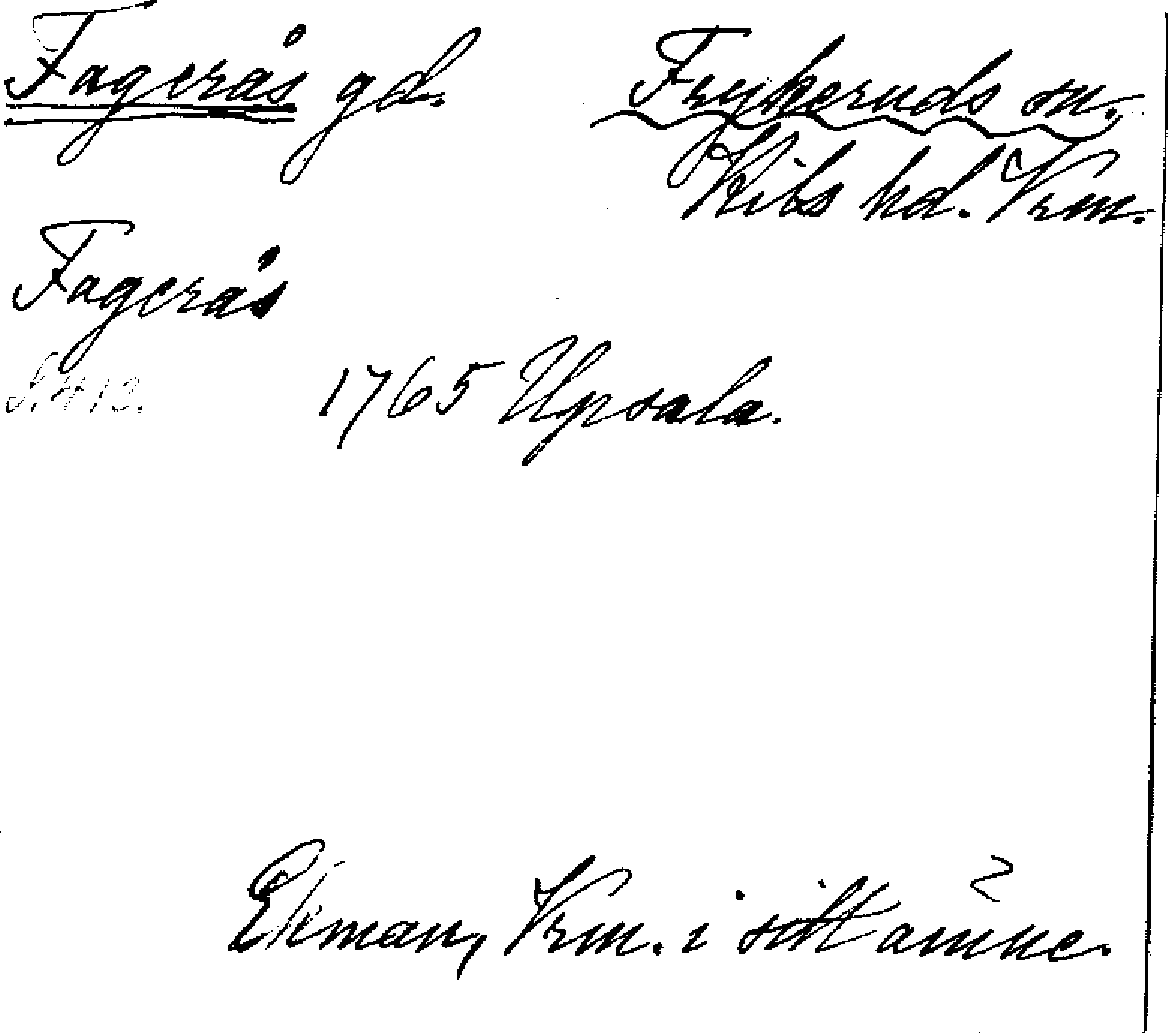 Fagerås gd. Frykeruds sn.,
Kils hd. Vrm.
Fagerås
S. 413. 1765 Upsala.
Ekman, Vrm. i sitt ämne.